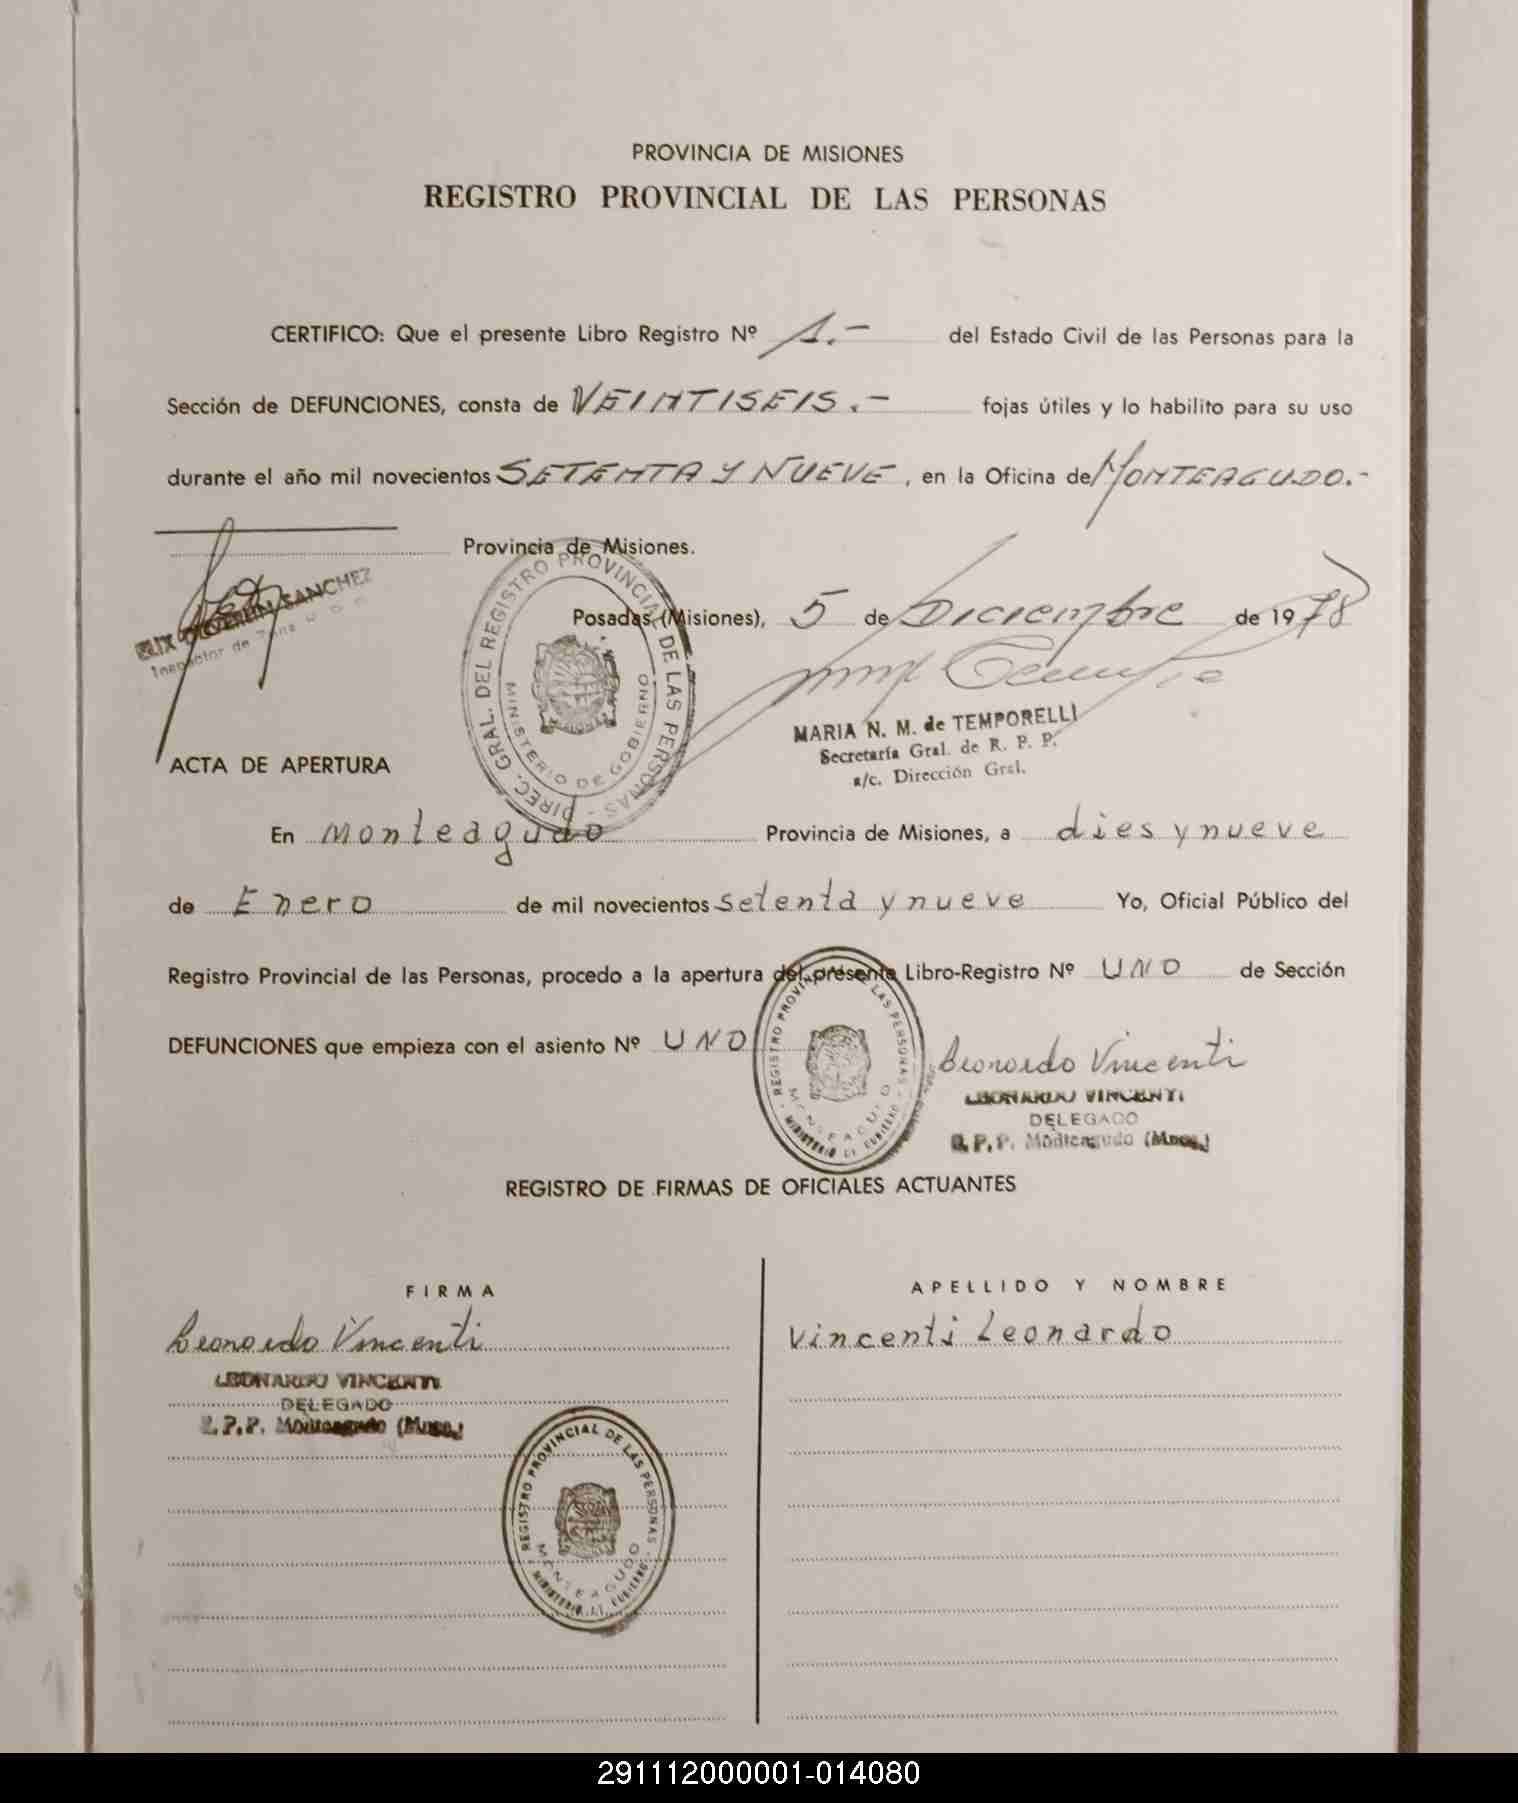 PROVINCIA DE MISIONES
REGISTRO PROVINCIAL DE LAS PERSONAS
CERTIFICO: Que el presente Libro Registro Nº 1.- del Estado Civil de las Personas para la
Sección de DEFUNCIONES, consta de VEINTISEIS.- fojas útiles y lo habilito para su uso
durante el año mil novecientos SETENTA Y NUEVE, en la Oficina de MONTEAGUDO.-
Provincia de Misiones.
SANCHEZ
Inspector de Zona
DIREC. GRAL. DEL REGISTRO PROVINCIAL DE LAS PERSONAS -
MINISTERIO DE GOBIERNO
MISIONES
Posadas, (Misiones), 5 de Diciembre de 1978
MARIA N. M. de TEMPORELLI
Secretaría Gral. de R. P. P.
a/c. Dirección Gral.
ACTA DE APERTURA
En Monteagudo Provincia de Misiones, a dies y nueve
de Enero de mil novecientos setenta y nueve Yo, Oficial Público del
Registro Provincial de las Personas, procedo a la apertura del presente Libro-Registro Nº UNO de Sección
DEFUNCIONES que empieza con el asiento Nº UNO
REGISTRO PROVINCIAL DE LAS PERSONAS
MONTEAGUDO
MINISTERIO DE GOBIERNO
Leonardo Vincenti
LEONARDO VINCENTI
DELEGADO
R.P.P. Monteagudo (Mnes.)
REGISTRO DE FIRMAS DE OFICIALES ACTUANTES
FIRMA
APELLIDO Y NOMBRE
Leonardo Vincenti
Vincenti Leonardo
LEONARDO VINCENTI
DELEGADO
R.P.P. Monteagudo (Mnes.)
REGISTRO PROVINCIAL DE LAS PERSONAS
MONTEAGUDO
MINISTERIO DE GOBIERNO
291112000001-014080